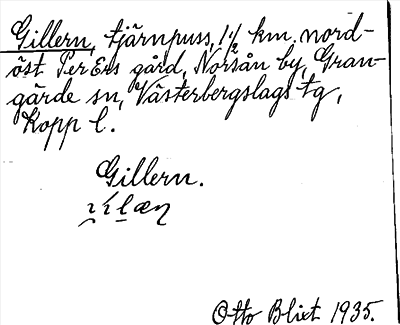 Gillern, tjärnpuss, 1½ km. nord-
öst Per Ers gård, Norsån by, Gran-
gärde sn, Västerbergslags tg,
Kopp l.
Gillern.
Otto Blixt 1935.